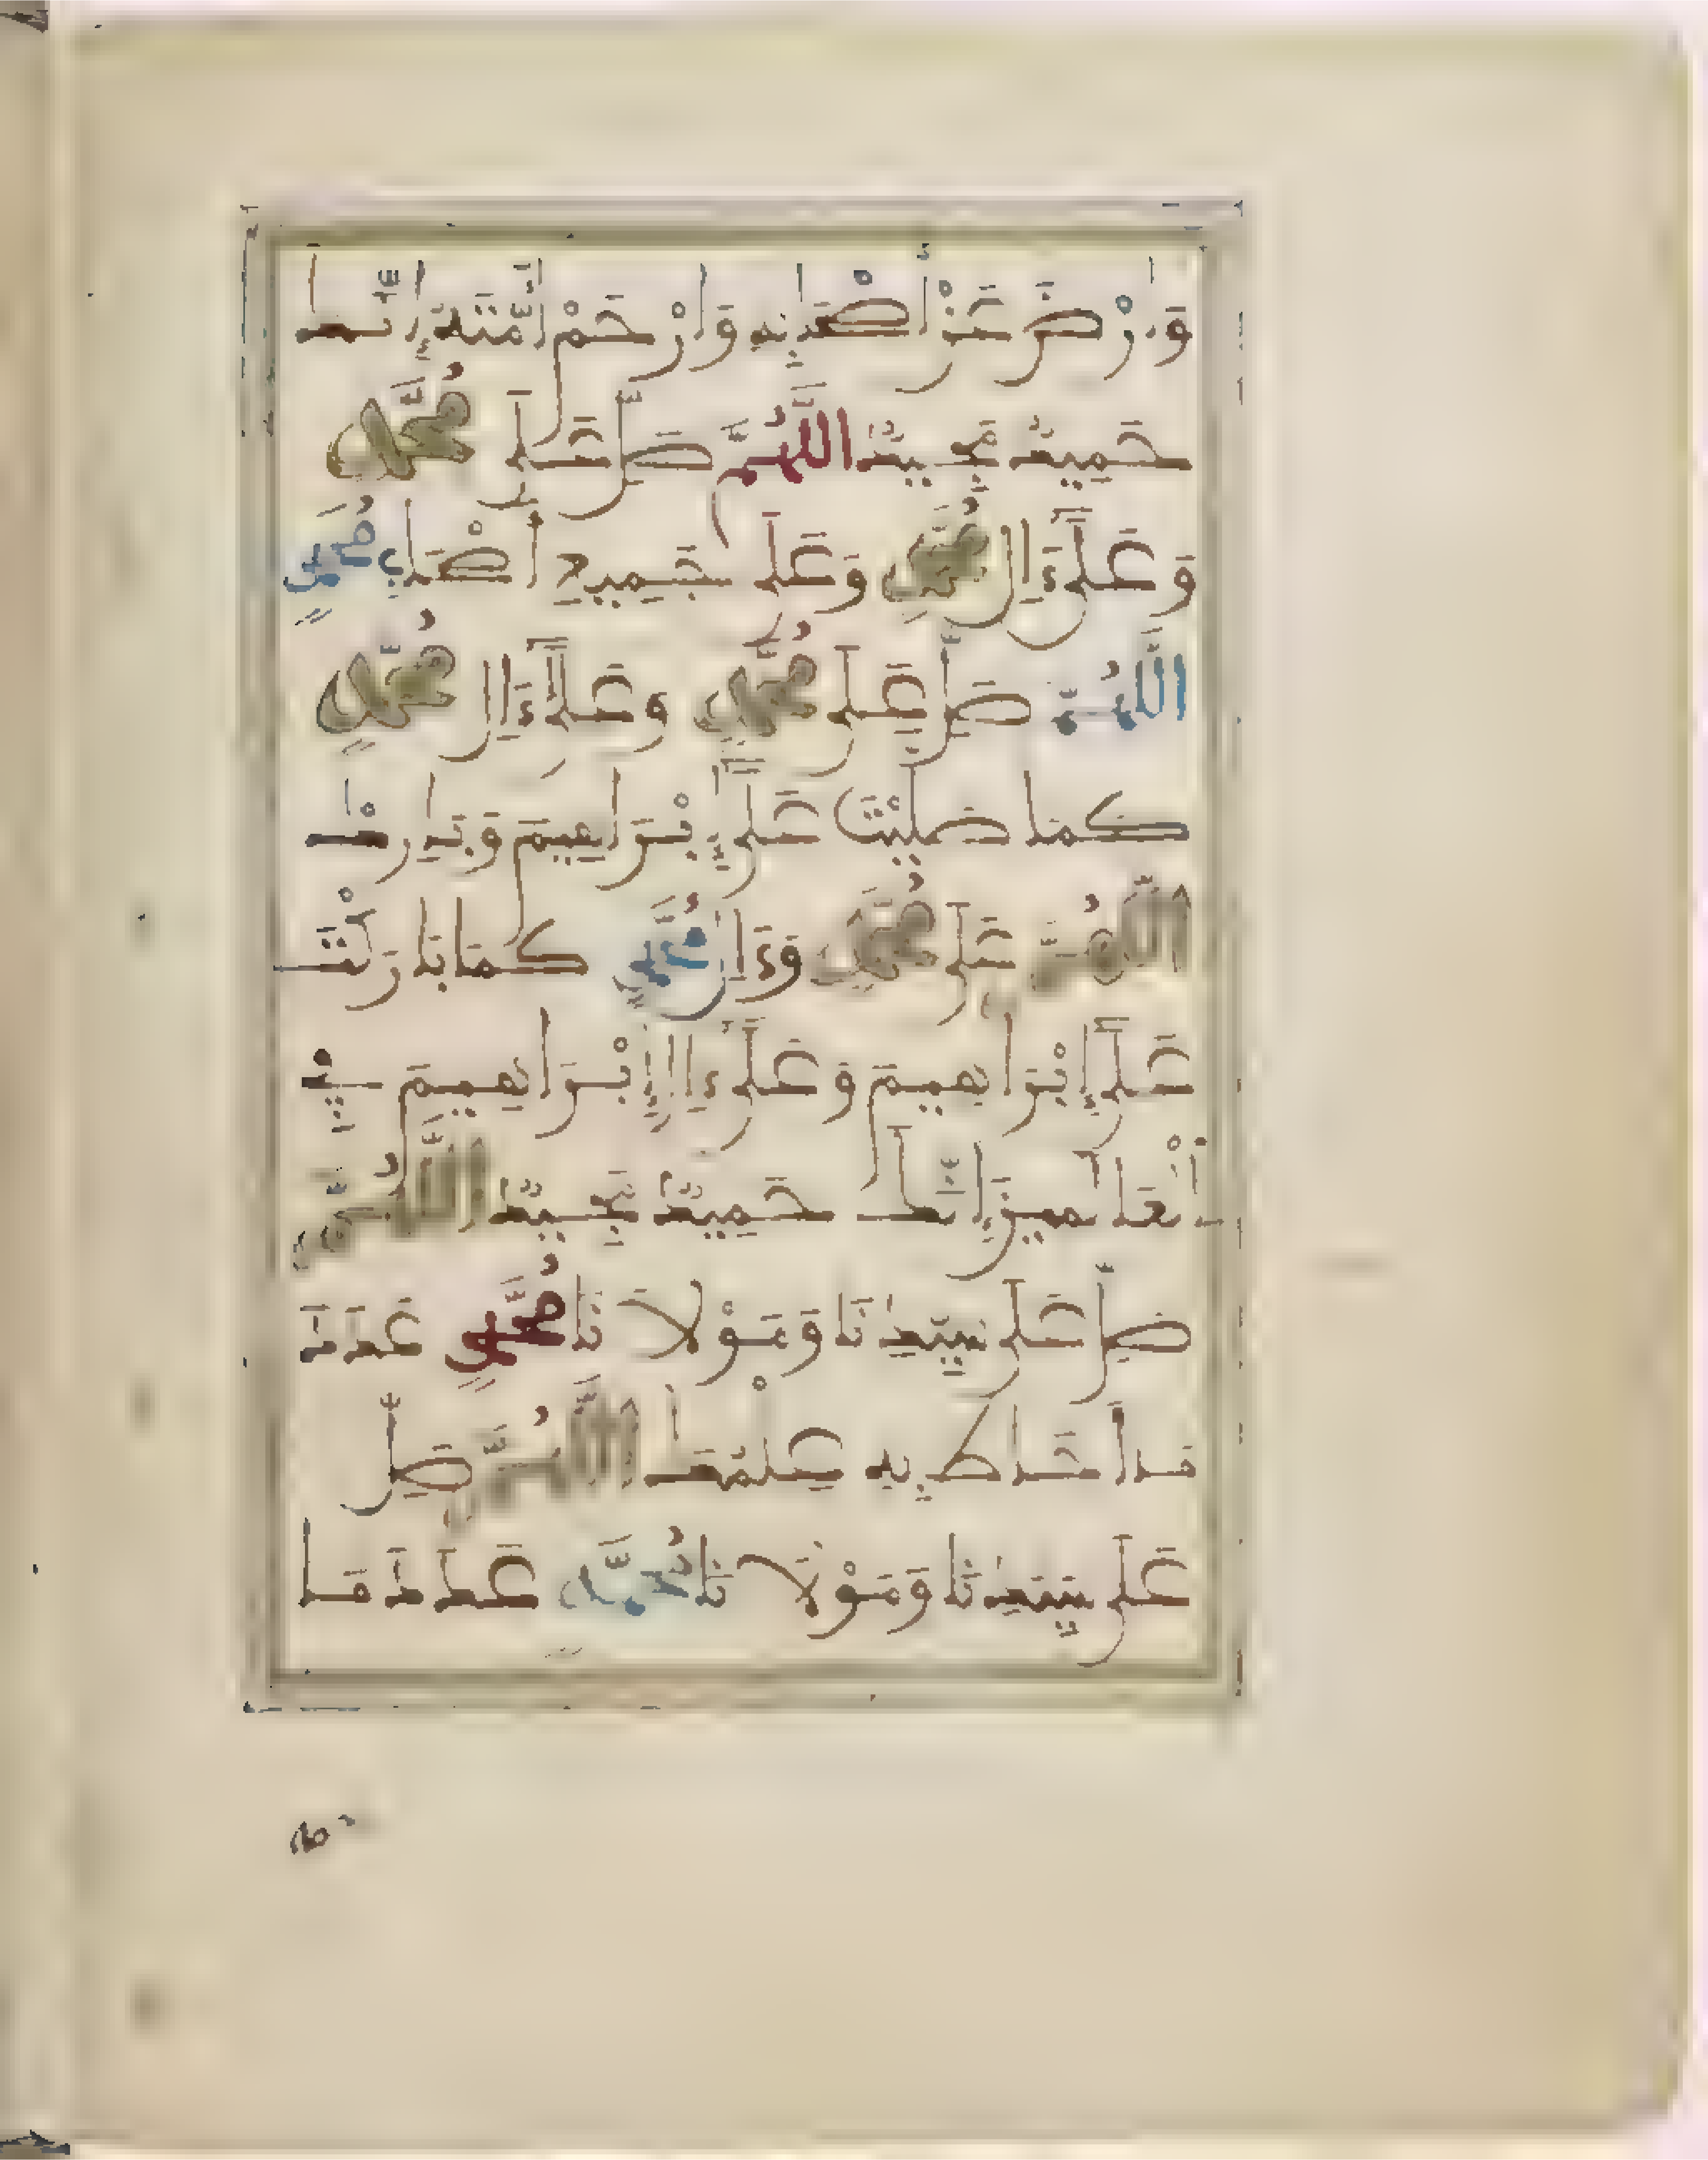 وَارْضَ عَنْ أَصْحَابِهِ وَارْحَمْ أُمَّتَهُ إِنَّكَ
حَمِيدٌ مَجِيدٌ اللَّهُمَّ صَلِّ عَلَى مُحَمَّدٍ
وَعَلَى ءَالِ مُحَمَّدٍ وَعَلَى جَمِيعِ أَصْحَابِ مُحَمَّدٍ
اللَّهُمَّ صَلِّ عَلَى مُحَمَّدٍ وَعَلَى ءَالِ مُحَمَّدٍ
كَمَا صَلَّيْتَ عَلَى إِبْرَاهِيمَ وَبَارِكْ
اللَّهُمَّ عَلَى مُحَمَّدٍ وَءَالِ مُحَمَّدٍ كَمَا بَارَكْتَ
عَلَى إِبْرَاهِيمَ وَعَلَى ءَالِ إِبْرَاهِيمَ فِي
الْعَالَمِينَ إِنَّكَ حَمِيدٌ مَجِيدٌ اللَّهُمَّ
صَلِّ عَلَى سَيِّدِنَا وَمَوْلَانَا مُحَمَّدٍ عَدَدَ
مَا أَحَاطَ بِهِ عِلْمُكَ اللَّهُمَّ صَلِّ
عَلَى سَيِّدِنَا وَمَوْلَانَا مُحَمَّدٍ عَدَدَ مَا